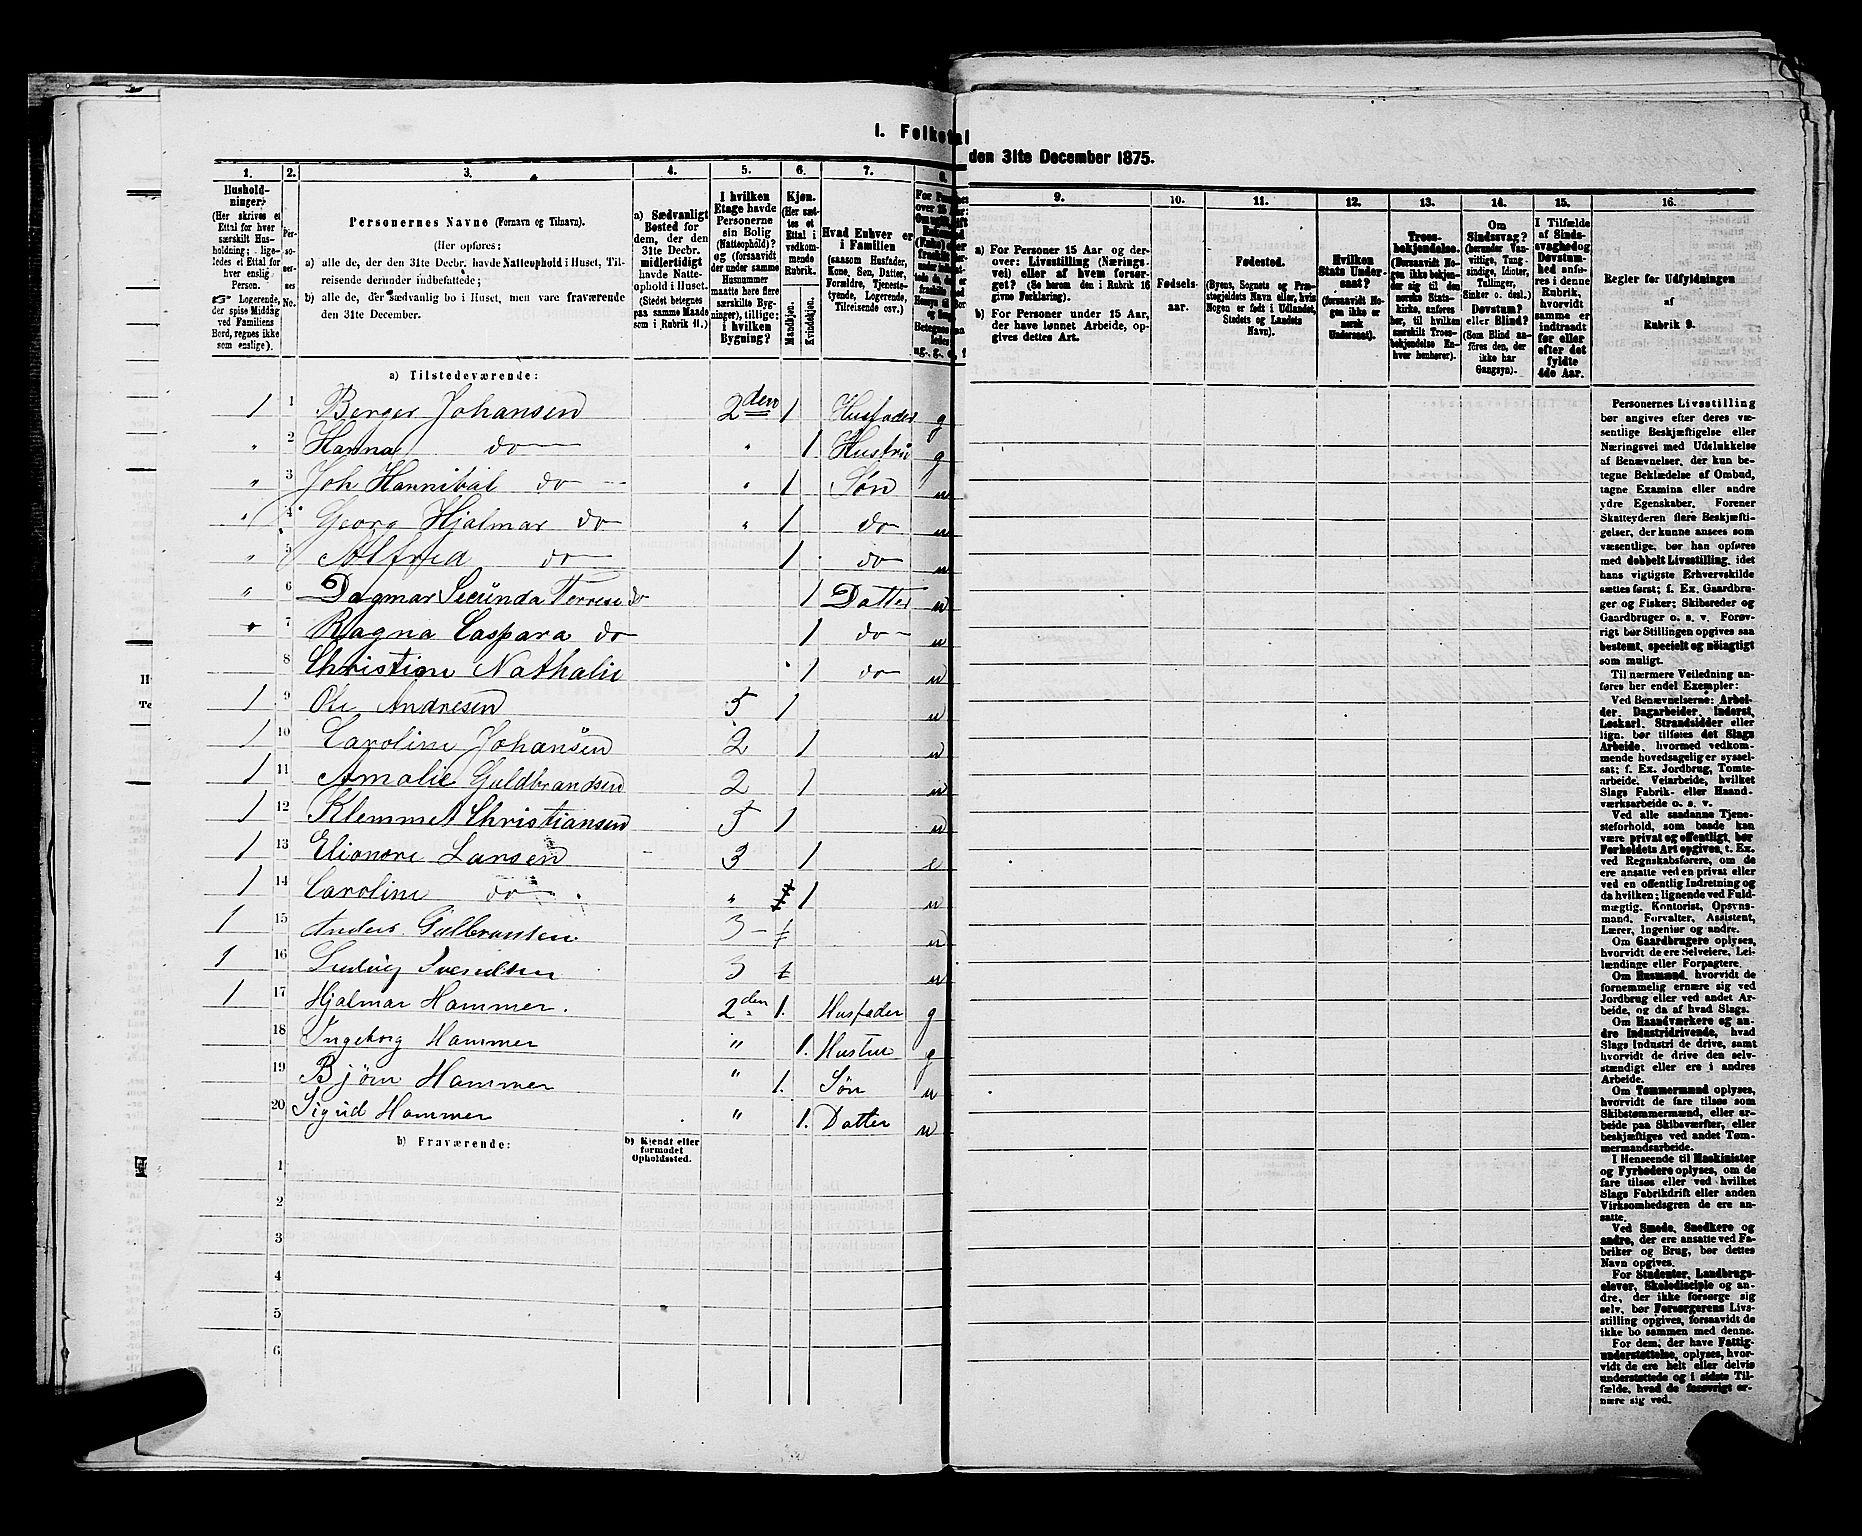 I. Folketal
den 31te December 1875.
1. 2. 3. 4. 5. 6. 7. 8. 9. 10. 11. 12. 13. 14. 15. 16.
Husholdninger.
(Her skrives et Ettal for hver særskilt Husholdning; ligeledes et Ettal for hver enslig Person.
☞ Logerende, der spise Middag ved Familiens Bord, regnes ikke som enslige).
Personernes No.
Personernes Navne (Fornavn og Tilnavn).
(Her opføres:
a) alle de, der den 31te Decbr. havde Natteophold i Huset, Tilreisende derunder indbefattede;
b) alle de, der sædvanlig bo i Huset, men vare fraværende den 31te December.
a) Sædvanligt Bosted for dem, der den 31te Decbr. midlertidigt havde Natteophold i Huset.
(Stedet betegnes paa samme Maade som i Rubrik 11.)
I hvilken Etage havde Personerne sin Bolig (Natteophold)? og (forsaavidt der under samme Husnummer maatte høre flere særskilte Bygninger), tillige: i hvilken Bygning?
Kjøn.
(Her sættes et Ettal i vedkommende Rubrik.
Mandkjøn. Kvindekjøn.
Hvad Enhver er i Familien
(saasom Husfader, Kone, Søn, Datter, Forældre, Tjenestetyende, Logerende, Tilreisende osv.)
a) For Personer 15 Aar og derover: Livsstilling (Næringsvei) eller af hvem forsørget? (Se herom den i Rubrik 16 givne Forklaring).
b) For Personer under 15 Aar, der have lønnet Arbeide, opgives dettes Art.
Fødselsaar.
Fødested.
(Byens, Sognets og Præstegjeldets Navn eller, hvis Nogen er født i Udlandet, Stedets og Landets Navn).
Hvilken Stats Undersaat?
(forsaavidt Nogen ikke er norsk Undersaat).
Troesbekjendelse.
(Forsaavidt Nogen ikke bekjender sig til den norske Statskirke, anføres her, til hvilken særskilt Troesbekjendelse Enhver henhører).
Om Sindssvag? (herunder Vanvittige, Tungsindige, Idioter, Tullinger, Sinker o. desl.) Døvstum? eller Blind? (Som Blind anføres den, der ikke har Gangsyn).
I Tilfælde af Sindssvaghed og Døvstumhed anføres i denne Rubrik, hvorvidt samme er indtraadt før eller efter det fyldte 4de Aar.
Regler for Udfyldningen af Rubrik 9.
a) Tilstedeværende:
1 1 Berger Johansen 2den 1 Husfader g
" 2 Hanna do " 1 Hustru g
" 3 Joh Hannibal do " 1 Søn u
" 4 Georg Hjalmar do " 1 do u
" 5 Alfred do 1 do u
" 6 Dagmar Secunda do 1 Datter u
" 7 Ragna Caspara do 1 do u
8 Christine Nathalie 1 do u
1 9 Ole Andresen 5 1 u
1 10 Caroline Johansen 2 1 u
1 11 Amalie Guldbrandsen 2 1 u
1 12 Klemmet Christiansen 5 1 u
1 13 Elionore Larsen 3 1 e
1 14 Caroline do " 1 u
1 15 Anders Gulbransen 3 1 u
1 16 Ludvig Svendsen 3 1 u
1 17 Hjalmar Hammer. 2den 1. Husfader g
18 Ingeborg Hammer " 1. Hustru g
19 Bjørn Hammer " 1. Søn u
20 Sigrid Hammer " 1. Datter u
b) Fraværende:
b) Kjendt eller formodet Opholdssted.
1
2
3
4
5
6
Personernes Livsstilling
bør angives efter deres væ-
sentlige Beskjæftigelse eller
Næringsvei med Udelukkelse
af Benævnelser, der kun be-
tegne Beklædelse af Ombud,
tagne Examina eller andre
ydre Egenskaber. Forener
Skatteyderen flere Beskjæfti-
gelser, der kunne ansees som
væsentlige, bør han opføres
med dobbelt Livsstilling, idet
hans vigtigste Erhvervskilde
sættes først; f. Ex. Gaardbru-
ger og Fisker; Skibsreder og
Gaardbruger o. s. v. Forøv-
rigt bør Stillingen opgives saa
bestemt, specielt og nøiagtigt
som muligt.
Til nærmere Veiledning an-
føres her endel Exempler:
Ved Benævnelserne: Arbei-
der, Dagarbeider, Inderst,
Løskarl, Strandsidder eller
lign. bør tilføies det Slags
Arbeide, hvormed vedkom-
mende hovedsagelig er syssel-
sat; f. Ex. Jordbrug, Tomte-
arbeide, Veiarbeide, hvilket
Slags Fabrik- eller Haand-
værksarbeide o. s. v.
Ved alle saadanne Tjene-
steforhold, som baade kan
være privat og offentligt, bør
Forholdets Art opgives, t. Ex.
ved Regnskabsførere, om de
ere ansatte ved en privat eller
ved en offentlig Indretning og
da hvilken; lignende ved Fuld-
mægtig, Kontorist, Opsyns-
mand, Forvalter, Assistent,
Lærer, Ingeniør og andre.
Om Gaardbrugere oplyses,
hvorvidt de ere Selveiere, Lei-
lændinge eller Forpagtere.
Om Husmænd, hvorvidt de
fornemmelig ernære sig ved
Jordbrug eller ved andet Ar-
beide, og da af hvad Slags.
Om Haandværkere og an-
dre Industridrivende, hvad
Slags Industri de drive, samt
hvorvidt de drive den selv-
stændigt eller ere i andres
Arbeide.
Om Tømmermænd oplyses,
hvorvidt de fare tilsøs som
Skibstømmermænd, eller ar-
beide paa Skibsværfter, eller
beskjæftiges ved andet Tøm-
mermandsarbeide.
I Henseende til Maskinister
og Fyrbødere oplyses, om de
fare tilsøs eller ved hvilket
Slags Fabrikdrift eller anden
Virksomhedsgren de ere an-
satte.
Ved Smede, Snedkere og
andre, der ere ansatte ved Fa-
briker og Brug, bør dettes
Navn opgives.
For Studenter, Landbrugs-
elever, Skoledisciple og an-
dre, der ikke forsørge sig
selv, bør Forsørgerens Livs-
stilling opgives, forsaavidt de
ikke bo sammen med denne.
For dem, der have Fattig-
understøttelse, oplyses, hvor-
vidt de ere helt eller delvis
understøttede og i sidste Til-
fælde, hvad de forøvrigt er-
nære sig ved.